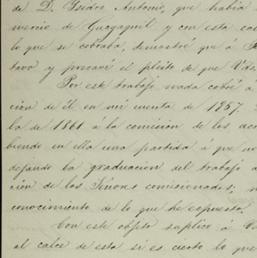 de D. Isidro Antonio, que habia
mercio de Guayaquil y con esta
lo que se cobraba, demostré que á
tavo y procuré el pleito de que
Por este trabajo nada cobré á
cion de él en mi cuenta de 1857.
la de 1861 á la comision de los
biendo en ella una partida á que
dejando la graduacion del trabajo
cion de los Señores comisionados;
conocimiento de lo que he expuesto.
Con este objeto suplico á
al calce de esta si es cierto lo que